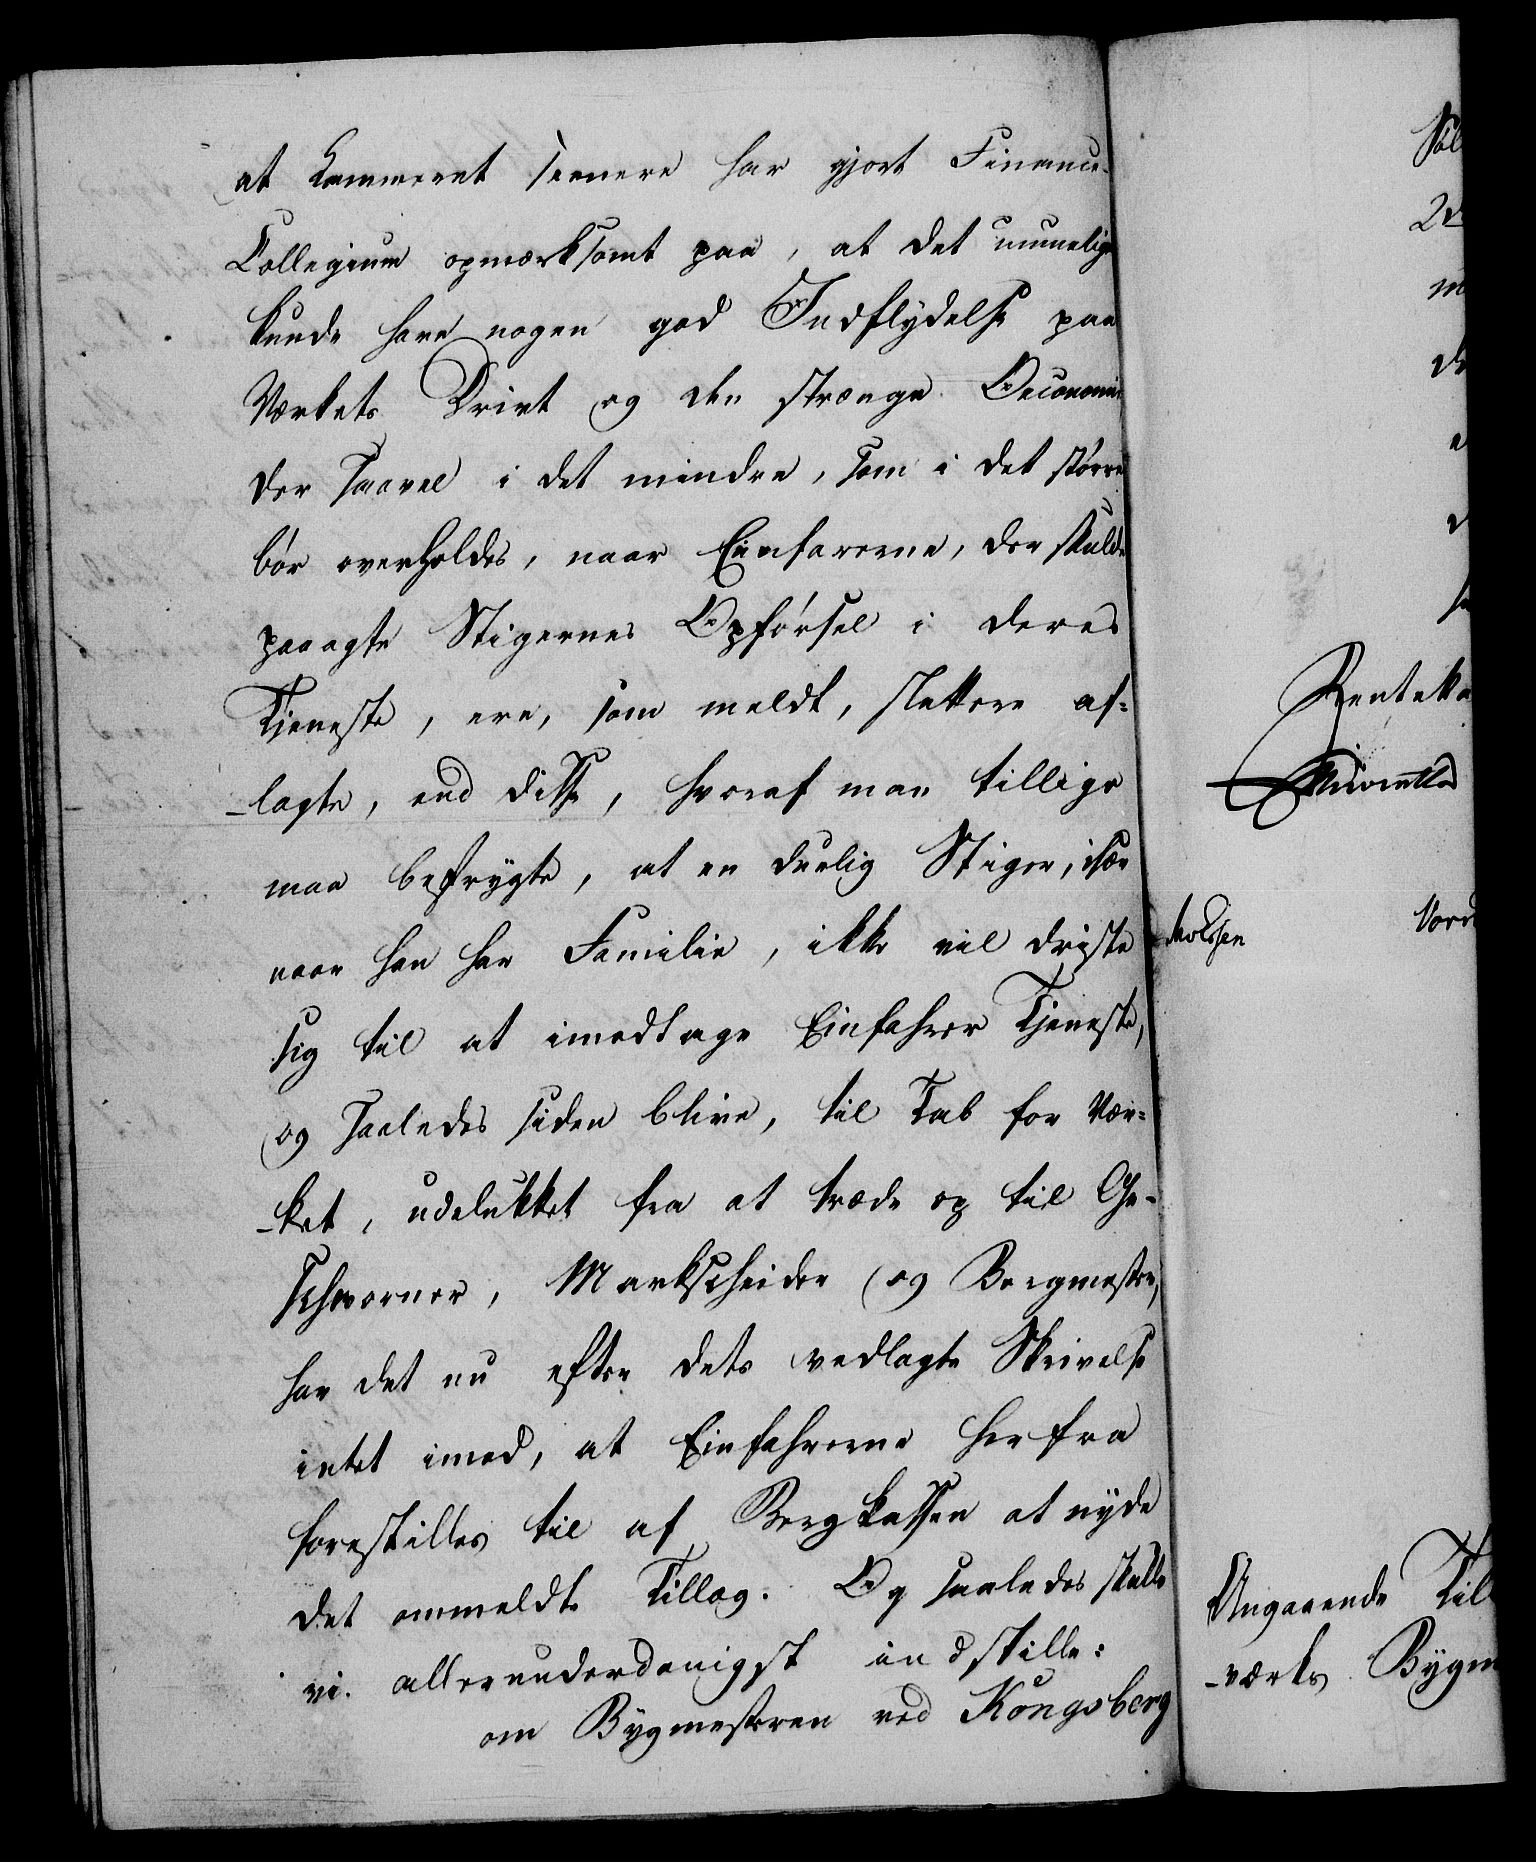 at Kammeret senere har gjort Finance-
Collegium opmærksomt paa, at det umuelig
kunde have nogen god Indflydelse paa
Værkets Drivt og den strænge Oeconomie
der saavel i det mindre, som i det større
bør overholdes, naar Einfarerne, der skulde
paaagte Stigernes Opførsel i deres
Tjeneste, ere, som meldt, slettere af-
-lagte, end disse, hvoraf man tillige
maa befrygte, at en duelig Stiger, især
naar han har Familie, ikke vil driste
sig til at imodtage Einfahrer Tjeneste,
og saaledes siden blive, til Tab for Vær-
-ket, udelukket fra at træde op til Ge-
schworner, Markscheider og Bergmester,
har det nu efter dets vedlagte Skrivelse
intet imod, at Einfahrerne herfra
forestilles til af Bergkassen at nyde
det ommeldte Tillæg. Og saaledes skulle
vi allerunderdanigst indstille:
om Bygmesteren ved Kongsberg
Rentek
Vor
Angaaende Til
-værks Bygm